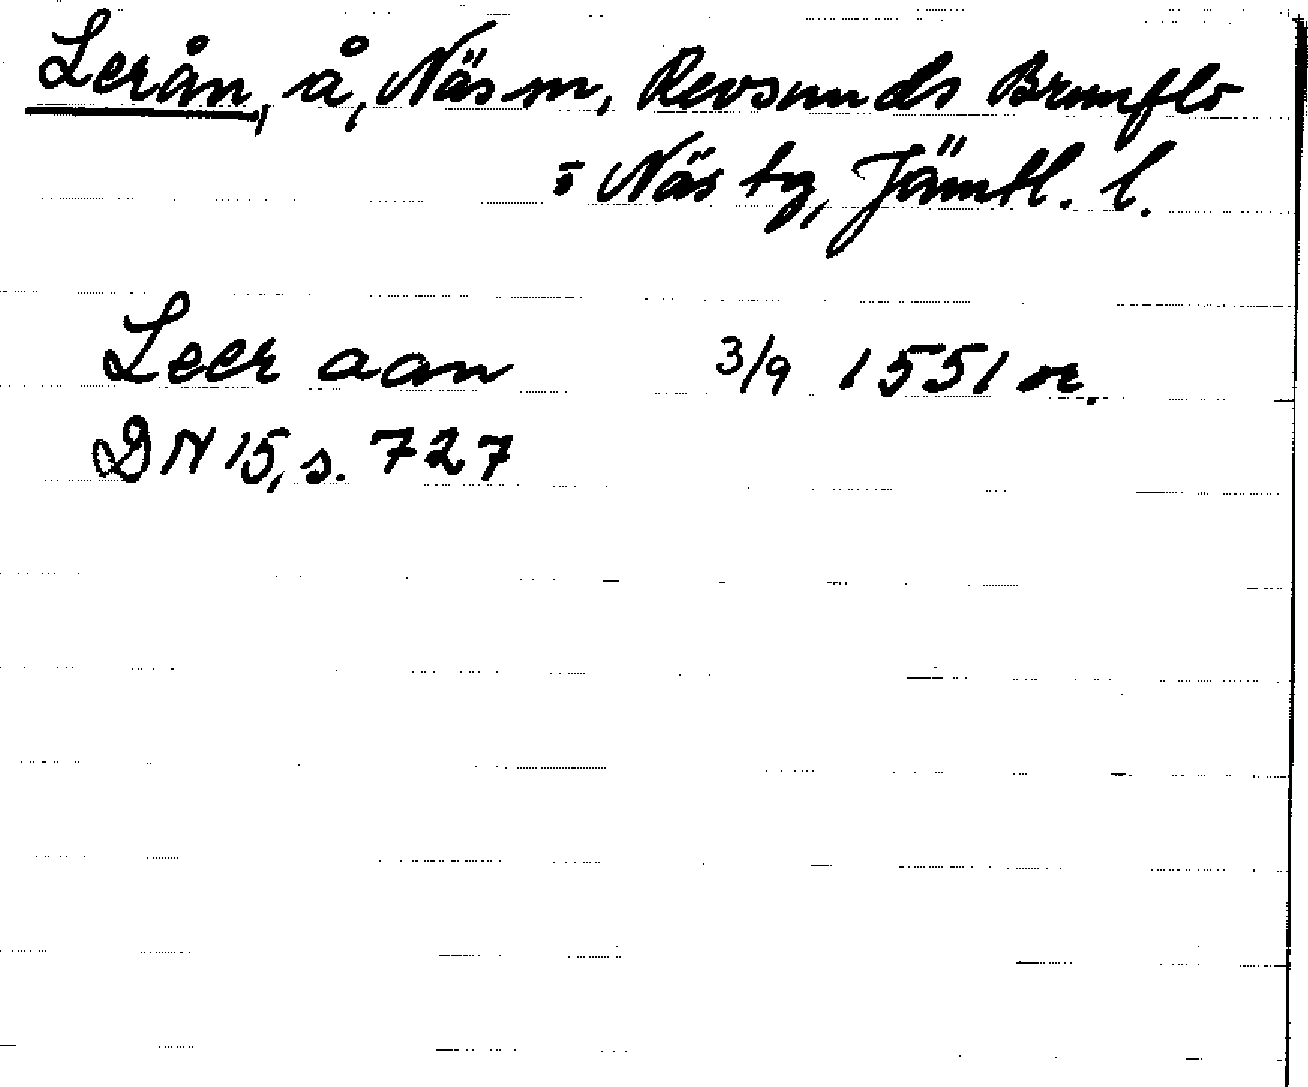 Lerån, å, Näs sn, Revsunds Brunflo
o Näs tg, Jämtl. l.
Leer aan 3/9 1551 or.
DN 15, s. 727